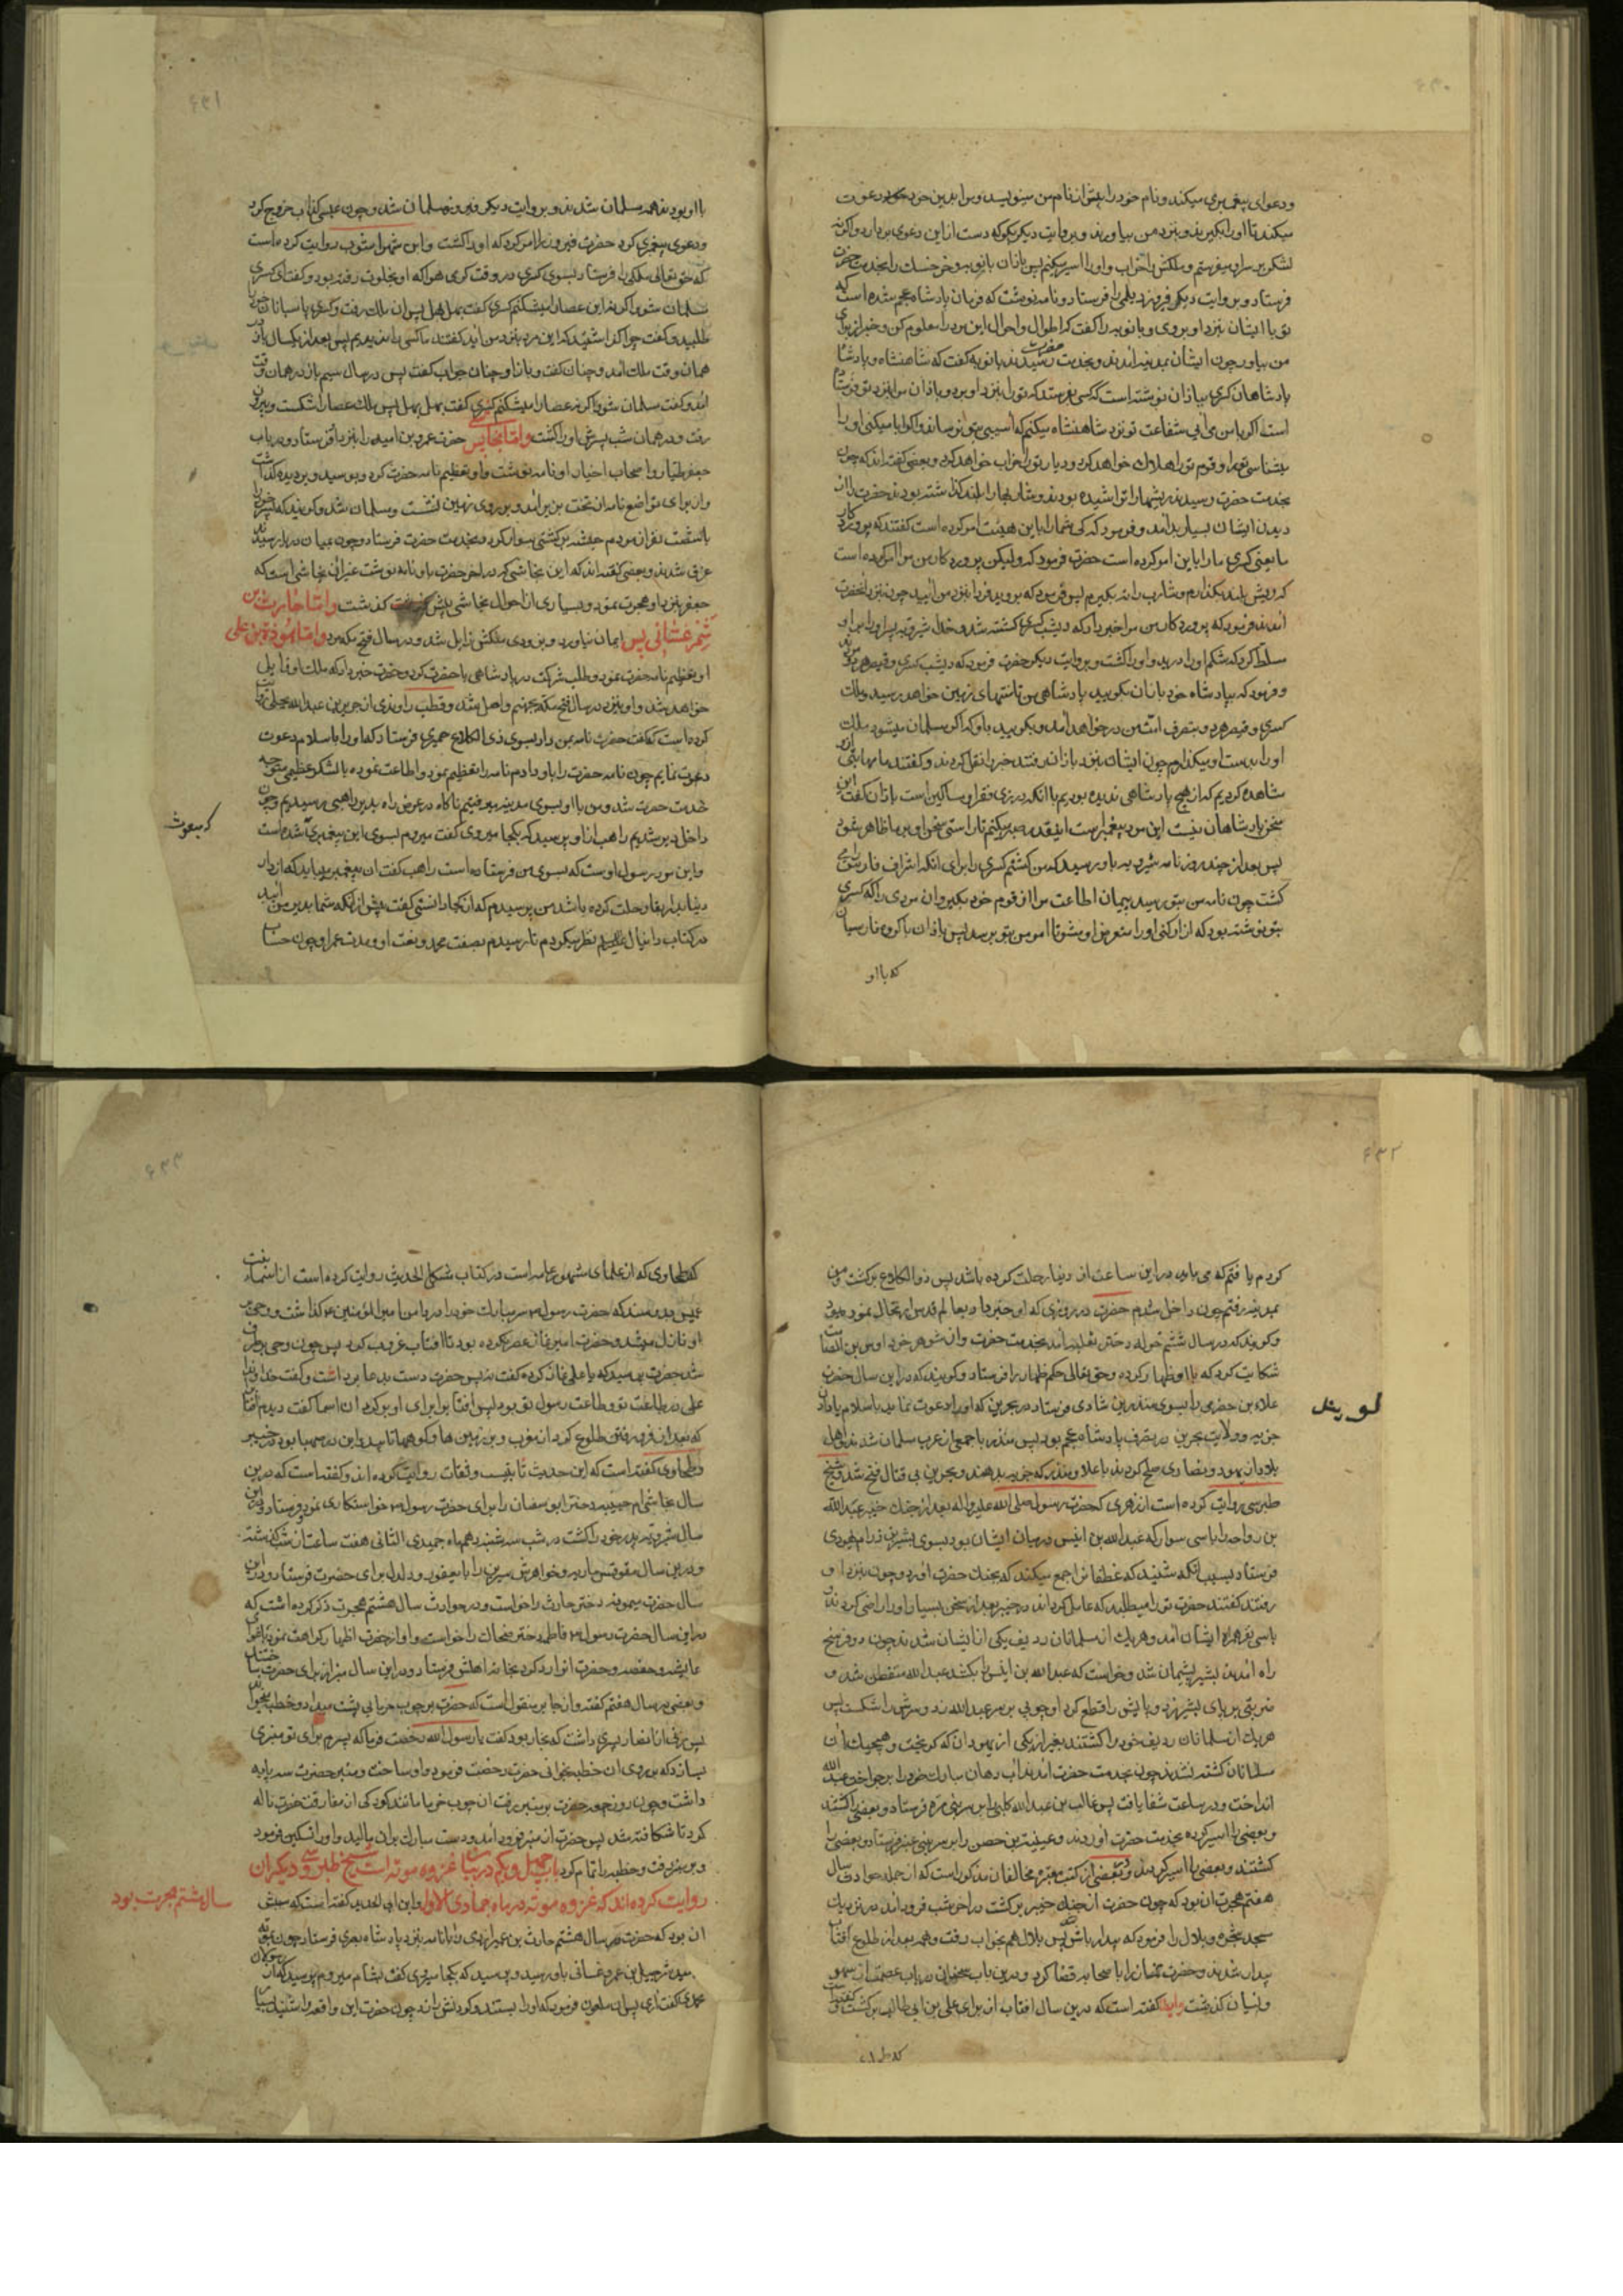 ۶۳۰
ودعوای پیغمبری میکند ونام خود را پیش از نام من مینویسد ومرا بدین خود دعوت
میکند تا او را بگیرند وبنزد من بیاورند وبروایت دیگر بگو که دست از این دعوی بردارد واگر نه
لشکر بر سر او میفرستم وملکش را خراب واو را اسیر میکنم پس باذان بانویه وخرخسک را بخدمت حضرت
فرستاد وبروایت دیگر فیروز دیلمی را فرستاد ونامه نوشت که فرمان پادشاه عجم شده است که
تو با ایشان بنزد او بروی وبانویه را گفت که اطوار واحوال این مرد را معلوم کن وخبر از برای
من بیاور چون ایشان بمدینه آمدند وبخدمت حضرت رسیدند بانویه گفت که شاهنشاه وپادشاه
پادشاهان کسری بباذان نوشته است که کسی بفرستد که تو را بنزد او برد وباذان مرا بنزد تو فرستاده
است اگر با من می آیی شفاعت تو نزد شاهنشاه میکنم که آسیبی بتو نرساند واگر ابا میکنی او را
میشناسی تو را وقوم تو را هلاک خواهد کرد ودیار تو را خراب خواهد کرد وبعضی گفته اند که چون
بخدمت حضرت رسیدند ریشها را تراشیده بودند وشاربها را بلند گذاشته بودند حضرت را از
دیدن ایشان بسیار بد آمد وفرمود که کی شما را باین هیئت امر کرده است گفتند که پروردگار
ما یعنی کسری ما را باین امر کرده است حضرت فرمود که ولیکن پروردگار من مرا امر کرده است
که ریش بلند بگذارم وشارب را ته بگیرم پس فرمود که بروید فردا نزد من آیید چون نزد آنحضرت
آمدند فرمود که پروردگار من مرا خبر داد که دیشب کسری کشته شد وخدا شیرویه پسر او را بر او
مسلط کرد که شکم او را درید واو را کشت وبروایت دیگر حضرت فرمود که دیشب کسری وقیصر هر دو مردند
وفرمود که بپادشاه خود باذان بگویید پادشاهی من تا منتهای زمین خواهد رسید وملک
کسری وقیصر هر دو بتصرف امت من در خواهد آمد وبگویید باو که اگر مسلمان میشود ملک
او را بدست او میگذارم چون ایشان بنزد باذان رفتند خبر را نقل کردند وگفتند ما مهابتی از او
مشاهده کردیم که از هیچ پادشاهی ندیده بودیم با آنکه در زی فقرا ومساکین است باذان گفت این
سخن پادشاهان نیست این مرد پیغمبر است اینقدر صبر میکنم تا راستی سخن او بر ما ظاهر شود
پس بعد از چند روز نامه شیرویه باو رسید که من کشتم کسری را برای آنکه اشراف فارس را می
کشت چون نامه من بتو رسید پیمان اطاعت مرا از قوم خود بگیر وآن مردی را که کسری
بتو نوشته بود که آزار کنی او را متعرض او مشو تا امر من بتو برسد پس باذان با گروه فارسیان
که با او
۶۳۱
با او بودند همه مسلمان شدند وبروایت دیگر فیروز مسلمان شد وچون عنسی کذاب خروج کرد
ودعوی پیغمبری کرد حضرت فیروز را امر کرد که او را کشت وابن شهرآشوب روایت کرده است
که حق تعالی ملکی را فرستاد بسوی کسری در وقت گرمی هوا که او بخلوت رفته بود وگفت ای کسری
مسلمان شو والا این عصا را میشکنم کسری گفت بهل بهل پس آن ملک رفت وکسری پاسبانان خود را
طلبید وگفت چرا گذاشتید که این مرد بنزد من آید گفتند ما کسی را ندیدیم پس بعد از یکسال باز در
همان وقت ملک آمد وچنان گفت وباز او چنان جواب گفت پس در سال سیم باز در همان وقت
آمد وگفت مسلمان شو والا این عصا را میشکنم کسری گفت بهل بهل پس ملک عصا را شکست وبیرون
رفت ودر همان شب پسرش او را کشت واما نجاشی پس حضرت عمرو بن امیه را بنزد او فرستاد ودر باب
جعفر طیار واصحاب احسان او نامه نوشت واو تعظیم نامه حضرت کرد وبوسید وبر دیده گذاشت
واز برای تواضع نامه از تخت بزیر آمد وبر روی زمین نشست ومسلمان شد وگویند که پسر خود را
با شصت نفر از مردم حبشه در کشتی سوار کرد وبخدمت حضرت فرستاد وچون بمیان دریا رسیدند
غرق شدند وبعضی گفته اند که این نجاشی که در آخر حضرت باو نامه نوشت غیر آن نجاشی است که
جعفر بنزد او هجرت نمود وبسیاری از احوال نجاشی پیش گذشت واما حارث بن
شمر غسانی پس ایمان نیاورد وبزودی ملکش زایل شد ودر سال فتح مکه مرد واما هوذة بن علی
او تعظیم نامه حضرت نمود وطلب شرکت در پادشاهی با حضرت کرد وحضرت خبر داد که ملک او زایل
خواهد شد واو نیز در سال فتح مکه بجهنم واصل شد وقطب راوندی از جریر بن عبدالله بجلی روایت
کرده است که گفت حضرت نامه بمن داد بسوی ذی الکلاع حمیری فرستاد که او را باسلام دعوت
دعوت نمایم چون نامه حضرت را باو دادم نامه را تعظیم نمود واطاعت نموده با لشکر عظیمی متوجه
خدمت حضرت شد ومن با او بسوی مدینه میرفتیم ناگاه در عرض راه بدیر راهبی رسیدیم وچون
داخل دیر شدیم راهب از او پرسید که بکجا میروی گفت میروم بسوی این پیغمبری شده است
که مبعوث
واین مرد رسول اوست که بسوی من فرستاده است راهب گفت آن پیغمبر میباید که از دار
دنیا بدار بقا رحلت کرده باشد من پرسیدم که از کجا دانستی گفت پیش از آنکه شما بدیر من آیید
در کتاب دانیال نظر میکردم تا رسیدم بصفت محمد ونعت او ومدت عمر او وچون حساب
۶۳۲
کردم یافتم که می باید در این ساعت از دنیا رحلت کرده باشد پس ذوالکلاع برگشت ومن
بمدینه رفتم چون داخل شدم حضرت در روزی که او خبر داد بعالم قدس ارتحال نموده بود
وگویند که در سال ششم خوله دختر ثعلبه آمد بخدمت حضرت واز شوهر خود اوس بن الصامت
شکایت کرد که با او ظهار کرده وحق تعالی حکم ظهار را فرستاد وگویند که در این سال حضرت
علاء بن حضرمی را بسوی منذر بن شادی فرستاد در بحرین که او را دعوت نماید باسلام یا دادن
جزیه وولایت بحرین در تصرف پادشاه عجم بود پس منذر با جمعی از عرب مسلمان شدند واهل
بلاد از یهود ونصاری صلح کردند با علا ومنذر که جزیه بدهند وبحرین بی قتال فتح شد وشیخ
طبرسی روایت کرده است از زهری که حضرت رسول صلی الله علیه واله بعد از جنگ خیبر عبدالله
بن رواحه را با سی سوار که عبدالله بن انیس در میان ایشان بود بسوی بشیر بن زرام یهودی
فرستاد بسبب آنکه شنید که غطفان را جمع میکند که بجنگ حضرت آورد وچون بنزد او
رفتند گفتند حضرت تو را میطلبد که عامل گرداند در خیبر بعد از سخن بسیار او را راضی کردند
با سی نفر همراه ایشان آمد وهر یک از مسلمانان ردیف یکی از ایشان شدند چون دو فرسخ
راه آمدند بشیر پشیمان شد وخواست که عبدالله بن انیس را بکشد عبدالله متفطن شد و
ضربتی بر پای بشیر زد وپایش را قطع کرد او چوبی بر سر عبدالله زد وسرش را شکست پس
هر یک از مسلمانان ردیف خود را کشتند بغیر از یکی از یهودان که گریخت وهیچیک از
مسلمانان کشته نشدند چون بخدمت حضرت آمدند آب دهان مبارک خود را بر جراحت عبدالله
انداخت ودر ساعت شفا یافت پس غالب بن عبدالله کلبی را بر سر بنی مره فرستاد وبعضی را کشتند
وبعضی را اسیر کرده بخدمت حضرت آوردند وعیینة بن حصن را بر سر بنی عنبر فرستاد وبعضی را
کشتند وبعضی را اسیر کردند وبعضی از کتب معتبره مخالفان مذکور است که از جمله حوادث سال
هفتم هجرت آن بود که چون حضرت از جنگ خیبر برگشت در آخر شب فرود آمد در نزدیک
مسجد شجره وبلال را فرمود که بیدار باش پس بلال هم بخواب رفت وهمه بعد از طلوع آفتاب
بیدار شدند وحضرت نماز را با صحابه قضا کرد ودرین باب سخنان در باب عصمت از سهو
ونسیان گذشت گفته است که درین سال آفتاب از برای علی بن ابی طالب برگشت
۶۳۳
که طحاوی که از علمای مشهور عامه است در کتاب مشکل الحدیث روایت کرده است از اسماء بنت
عمیس بدو سند که حضرت رسول سر مبارک خود را در دامن امیرالمؤمنین گذاشت ووحی بر
او نازل میشد وحضرت امیر نماز عصر نکرده بود تا آفتاب غروب کرد پس چون وحی برطرف
شد حضرت پرسید که یا علی نماز کرده گفت نه پس حضرت دست بدعا برداشت وگفت خداوندا
علی در طاعت تو وطاعت رسول تو بود پس آفتاب را برای او برگردان اسما گفت دیدم آفتاب
که بعد از فرو رفتن طلوع کرد از مغرب وبر زمین ها وکوهها تابید واین در صهبا بود در خیبر
وطحاوی گفته است که این حدیث ثابتست وثقات روایت کرده اند وگفته است که درین
سال نجاشی ام حبیبه دختر ابوسفیان را برای حضرت رسول خواستگاری نمود وفرستاد ودرین
سال شیرویه پدر خود را کشت در شب سه شنبه دهم ماه جمیدی الثانی هفت ساعت از شب گذشته
ودرین سال مقوقس ماریه وخواهرش سیرین را با یعفور ودلدل برای حضرت فرستاد ودرین
سال حضرت میمونه دختر حارث را خواست ودر حوادث سال هشتم هجرت ذکر کرده است که
در این سال حضرت رسول فاطمه دختر ضحاک را خواست واو از حضرت اظهار کراهت نمود باغوای
عایشه وحفصه وحضرت او را رد کرد بخانه اهلش فرستاد ودر این سال منبر از برای حضرت ساختند
وبعضی در سال هفتم گفته واز جابر منقول است که حضرت بر چوب خرمایی پشت میداد وخطبه میخواند
پس زنی از انصار پسری داشت که نجار بود گفت یا رسول الله رخصت فرما که پسرم برای تو منبری
بسازد که بر روی آن خطبه بخوانی حضرت رخصت فرمود واو ساخت ومنبر حضرت سه پایه
داشت وچون روز جمعه حضرت بر منبر رفت آن چوب خرما مانند کودکی از مفارقت حضرت ناله
کرد تا شکافته شد پس حضرت از منبر فرود آمد ودست مبارک بر آن مالید واو را تسکین فرمود
وبر منبر رفت وخطبه را تمام کرد باب چهل ویکم در بیان غزوه موته است شیخ طبرسی ودیگران
روایت کرده اند که غزوه موته در ماه جمادی الاول سال هشتم هجرت بود وابن ابی الحدید گفته است که سببش
آن بود که حضرت در سال هشتم حارث بن عمیر ازدی را با نامه بنزد پادشاه بصری فرستاد چون بموته
رسید شرحبیل بن عمرو غسانی باو رسید وپرسید که بکجا میروی گفت بشام میروم پرسید که از رسولان
محمدی گفت آری پس آن ملعون فرمود که او را بستند وگردنش زدند چون حضرت این واقعه را شنید